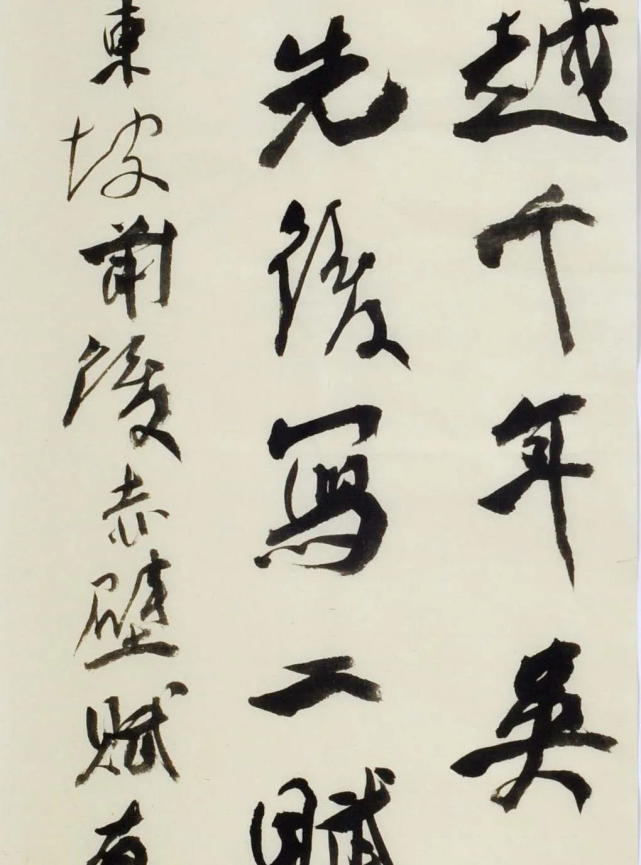 越千年奚
先後寫二賦
東坡前後赤壁賦